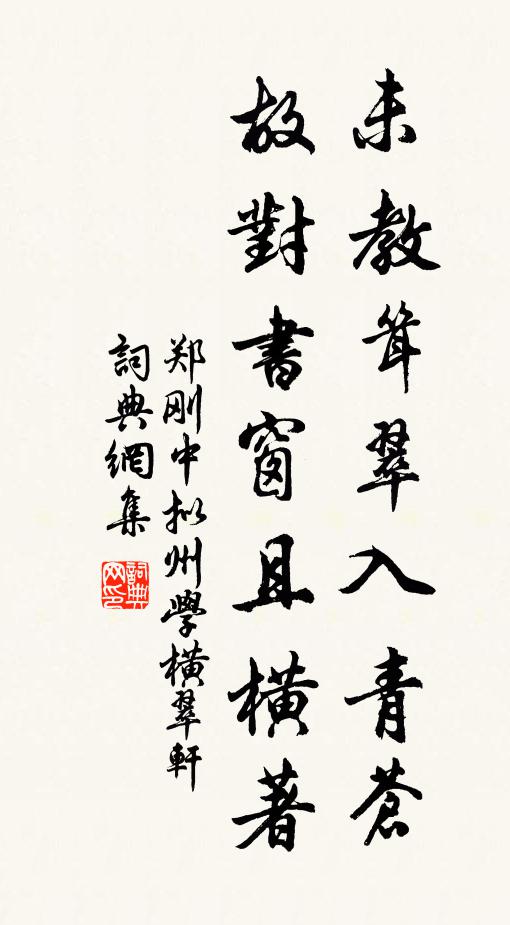 未教耸翠入青蒼
故對書窗且橫著
郑刚中拟州學橫翠軒
詞典網集
詞典网印